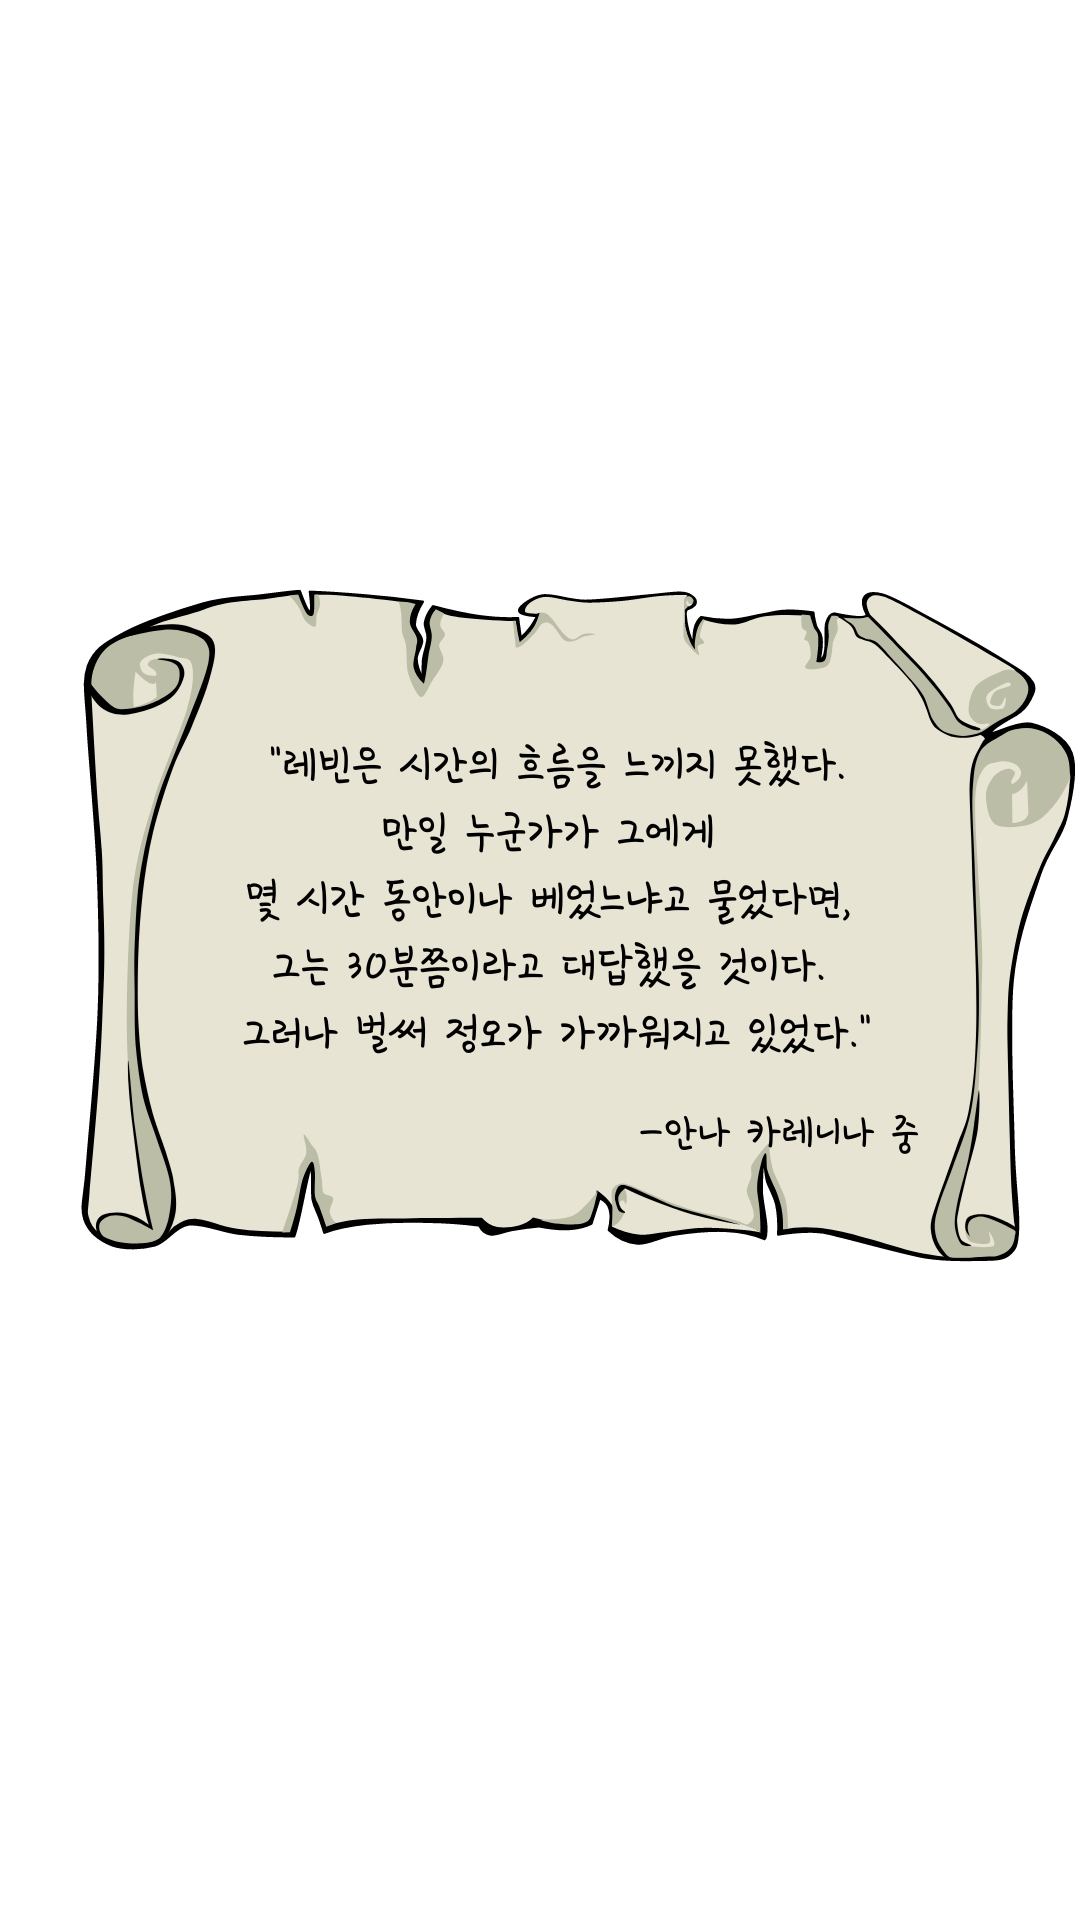 "레빈은 시간의 흐름을 느끼지 못했다.
만일 누군가가 그에게
몇 시간 동안이나 베었느냐고 물었다면,
그는 30분쯤이라고 대답했을 것이다.
그러나 벌써 정오가 가까워지고 있었다."
-안나 카레니나 중